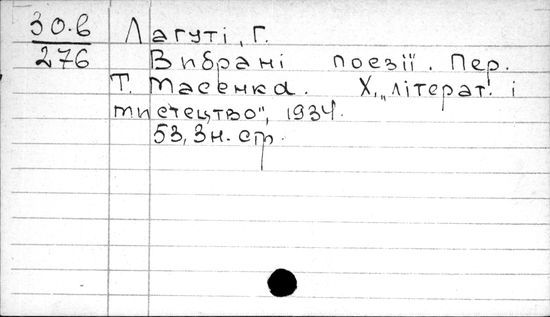 30.6 Лагуті, Г.
276 Вибрані поезії. Пер.
Т. Масенка. Х, „літерат. і
мистецтво", 1934.
53, 3 н. стр.